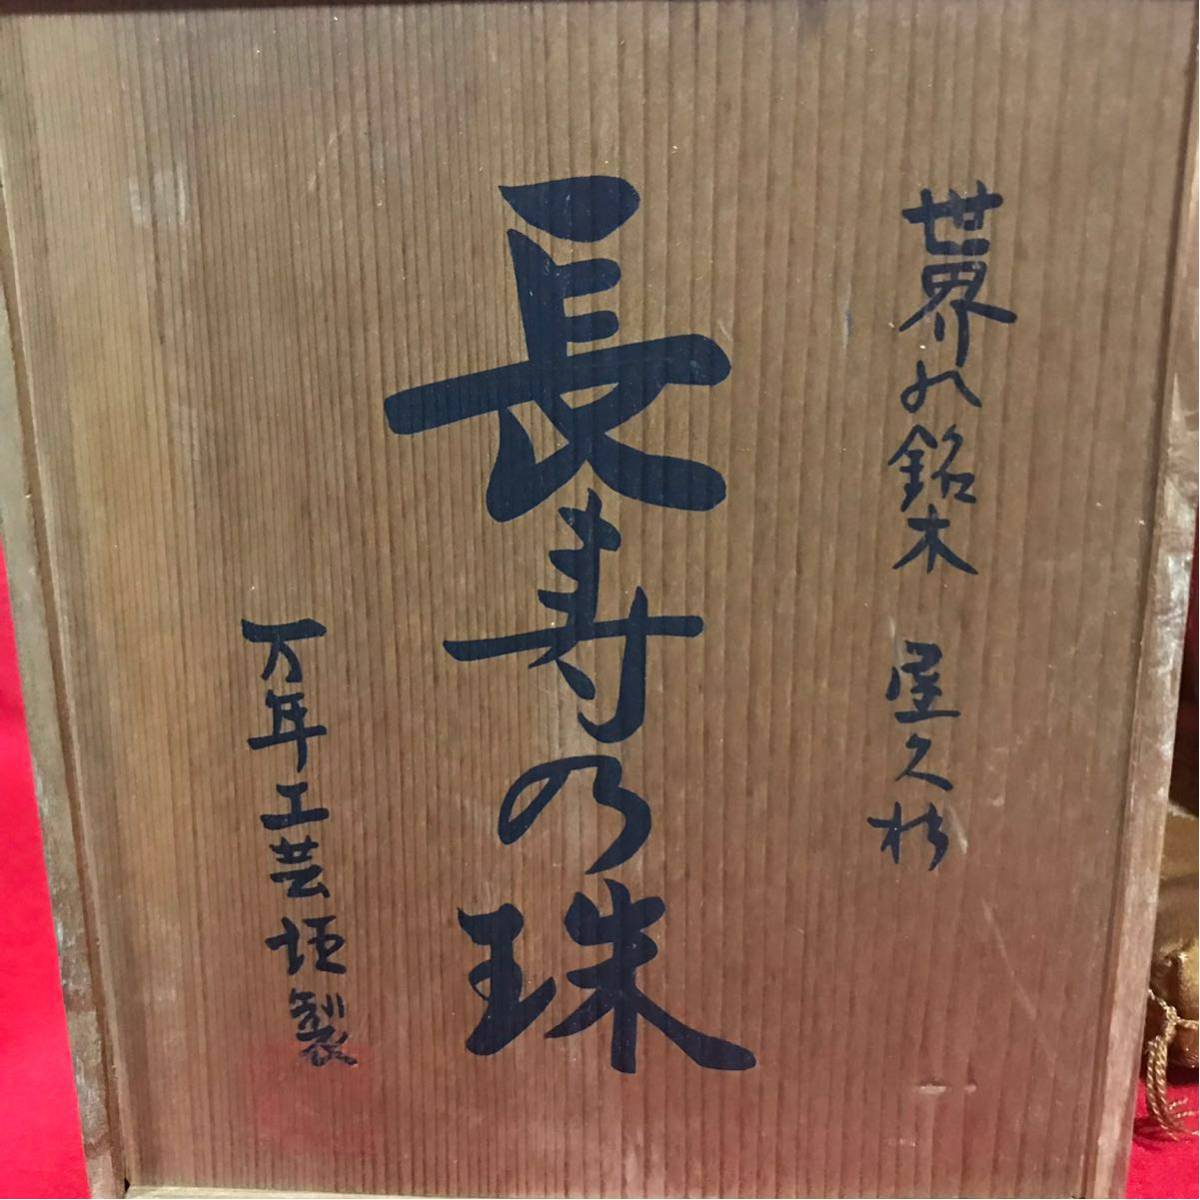 世界の銘木 屋久杉
長寿乃珠
万年工芸垣製